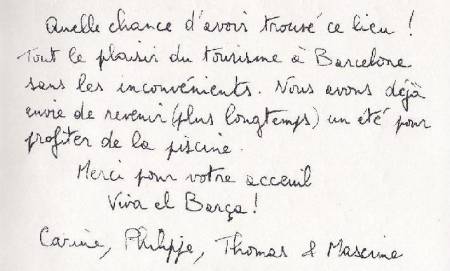 Quelle chance d'avoir trouvé ce lieu !
Tout le plaisir du tourisme à Barcelone
sans les inconvénients. Nous avons déjà
envie de revenir (plus longtemps) un été pour
profiter de la piscine.
Merci pour votre acceuil
Viva el Barça !
Carine, Philippe, Thomas & Maxime